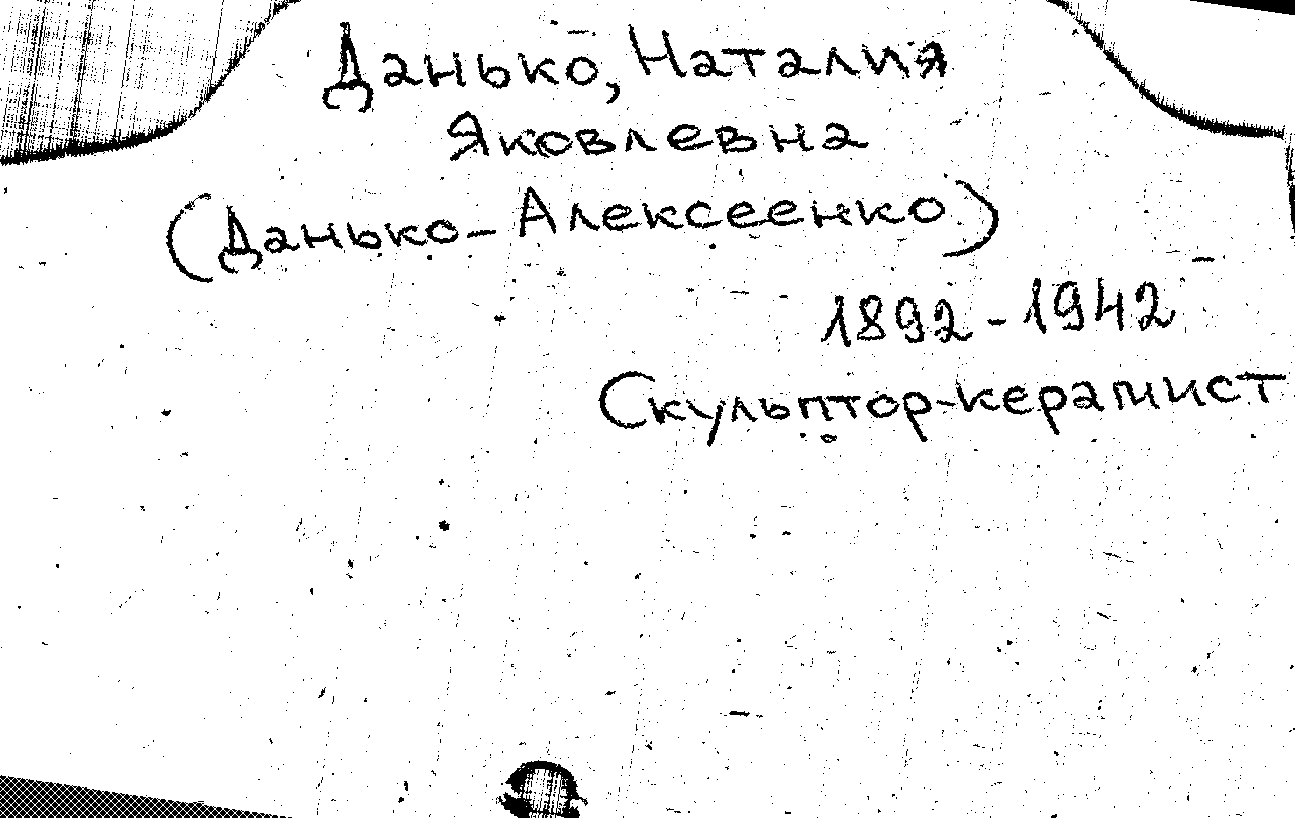 Данько, Наталия
Яковлевна
(Данько-Алексеенко)
1892-1942
Скульптор-керамист